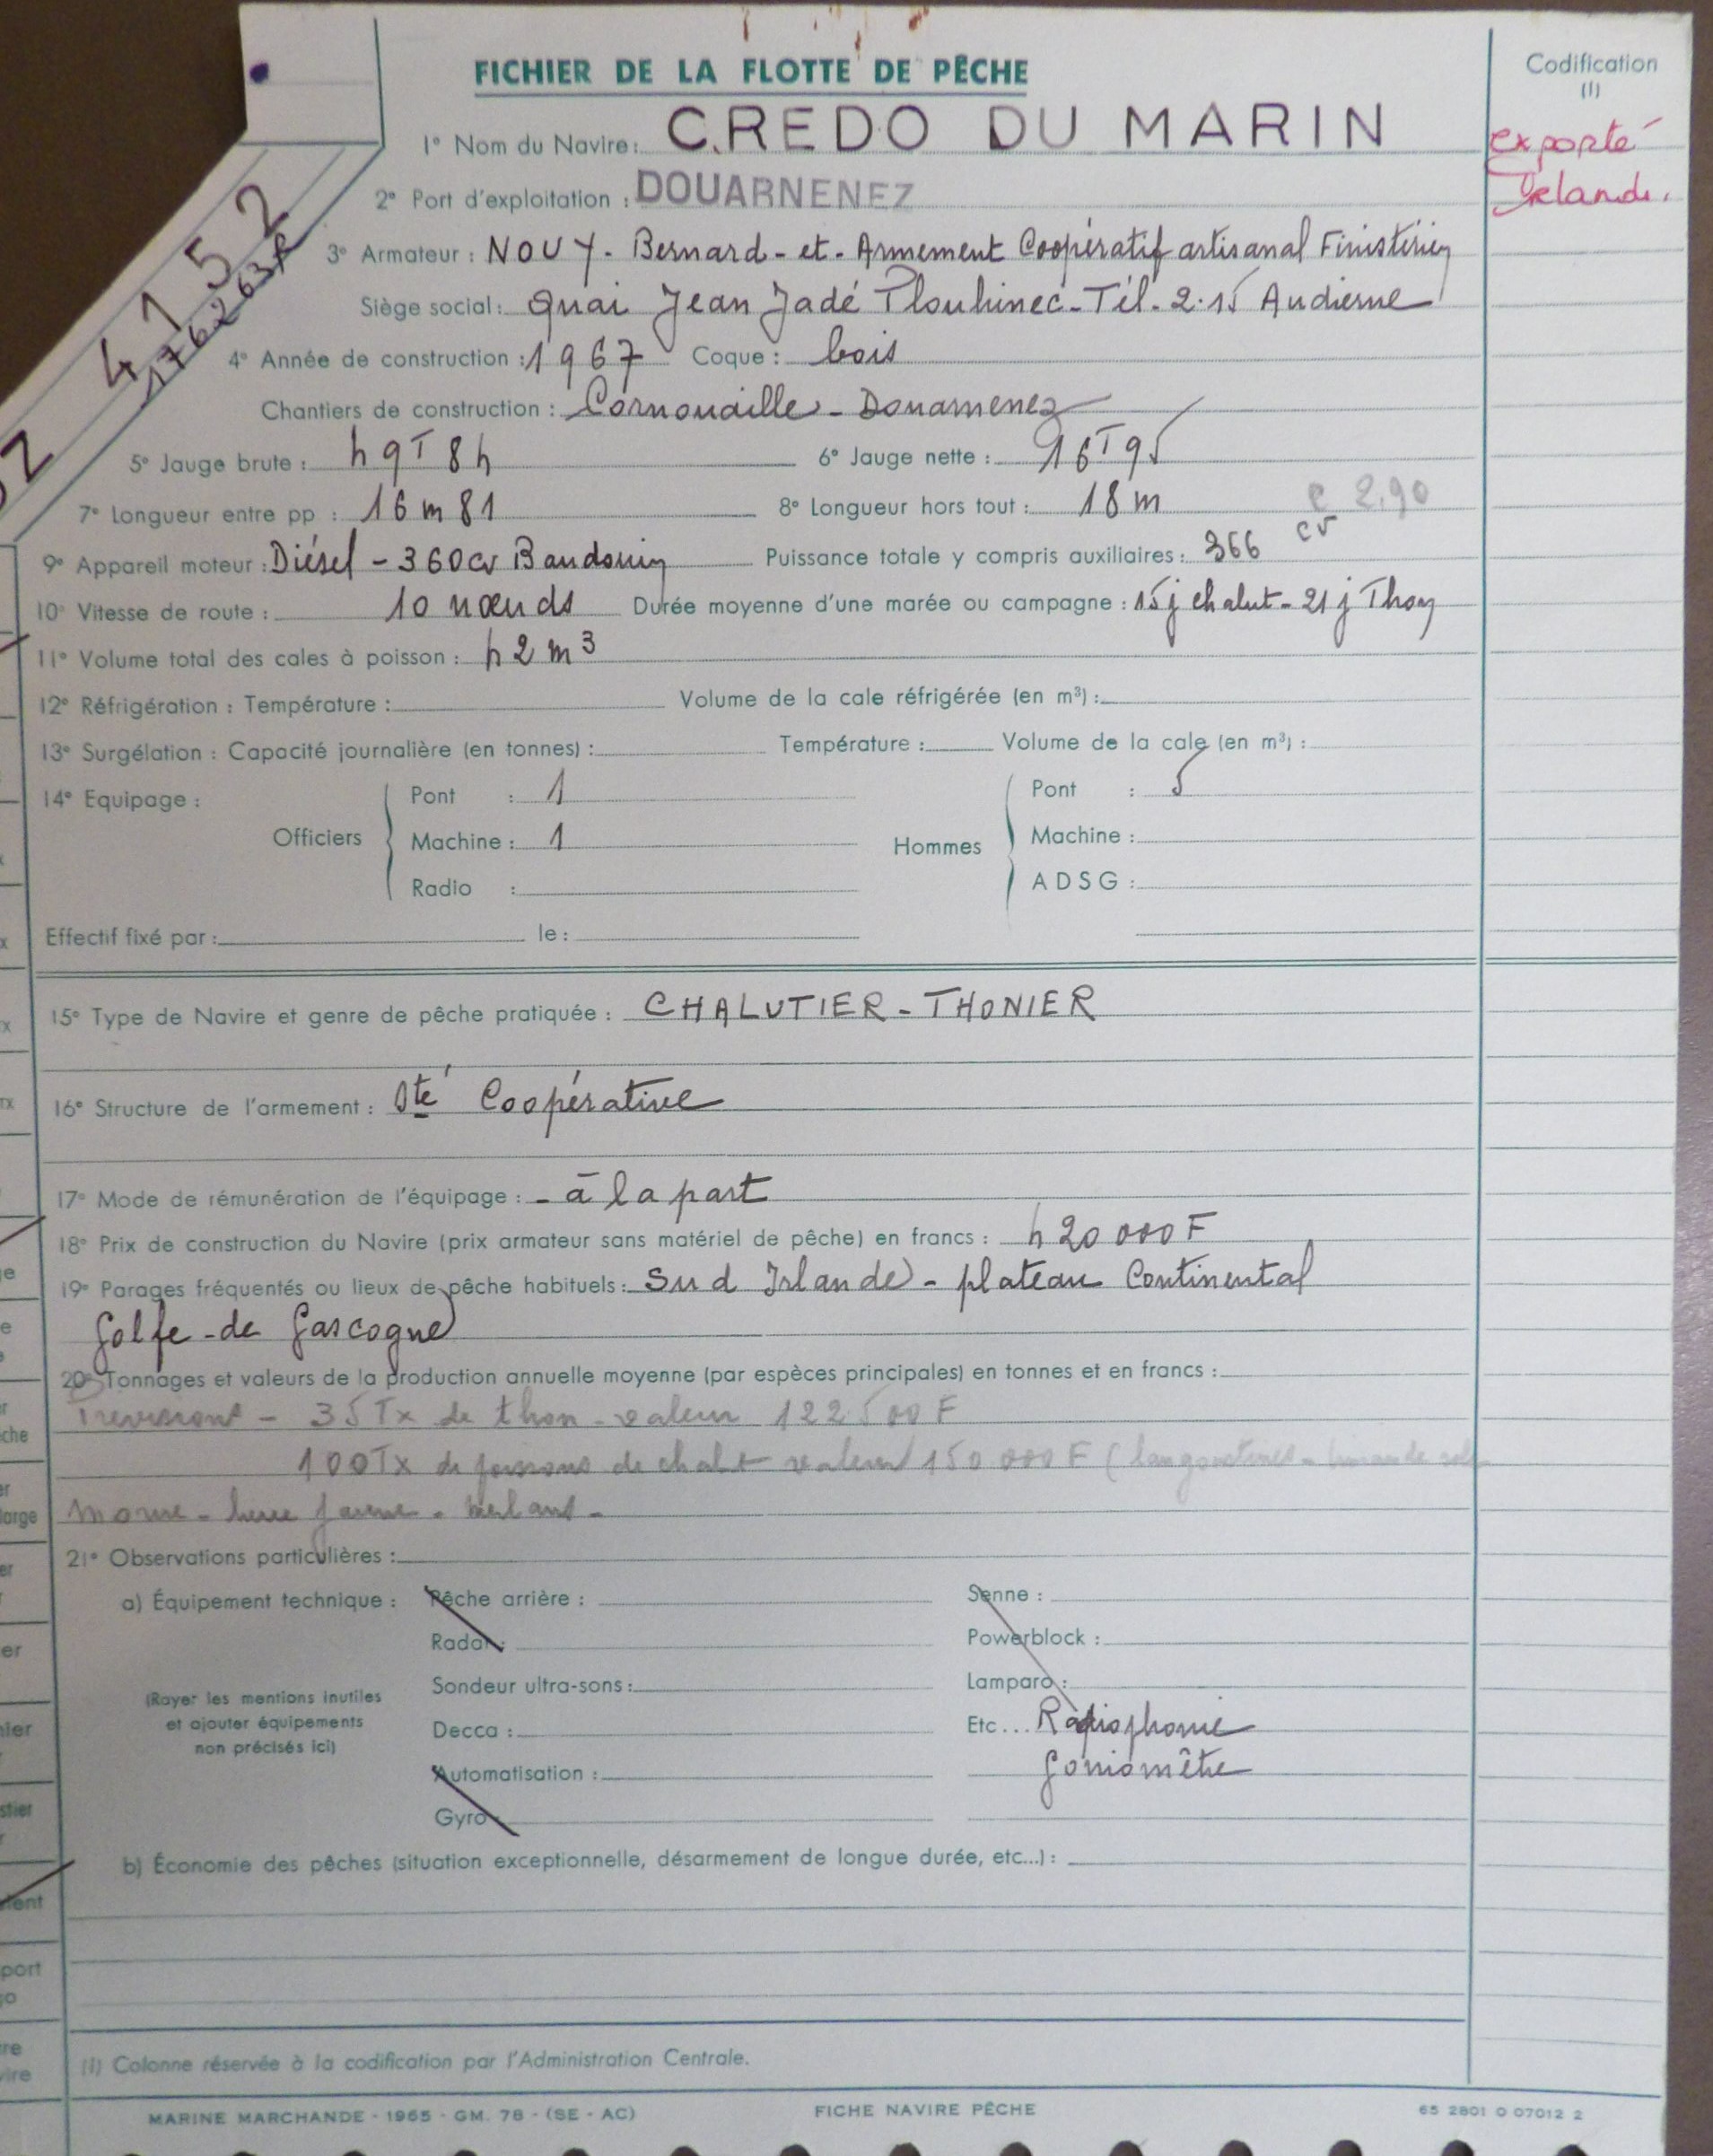 FICHIER DE LA FLOTTE DE PÊCHE
Codification
(1)
1° Nom du Navire : CREDO DU MARIN
exporté
Irlande.
2° Port d'exploitation : DOUARNENEZ
4152
176263
3° Armateur : NOUY - Bernard - et - Armement Coopératif artisanal Finistérien
Siège social : Quai Jean Jadé Plouhinec - Tél. 2.15 Audierne
4° Année de construction : 1967 Coque : bois
Chantiers de construction : Cornouaille - Douarnenez
5° Jauge brute : 49T84 6° Jauge nette : 16T95
7° Longueur entre pp : 16m81 8° Longueur hors tout : 18m c 2.90
9° Appareil moteur : Diésel - 360cv Baudouin Puissance totale y compris auxiliaires : 366 cv
10° Vitesse de route : 10 nœuds Durée moyenne d'une marée ou campagne : 15j chalut - 21j Thon
11° Volume total des cales à poisson : 42 m3
12° Réfrigération : Température : Volume de la cale réfrigérée (en m³) :
13° Surgélation : Capacité journalière (en tonnes) : Température : Volume de la cale (en m³) :
14° Equipage : Officiers Pont : 1 Hommes Pont : 5
Machine : 1 Machine :
Radio : ADSG :
Effectif fixé par : le :
15° Type de Navire et genre de pêche pratiquée : CHALUTIER - THONIER
16° Structure de l'armement : Sté Coopérative
17° Mode de rémunération de l'équipage : - à la part
18° Prix de construction du Navire (prix armateur sans matériel de pêche) en francs : 420 000 F
19° Parages fréquentés ou lieux de pêche habituels : Sud Irlande - plateau Continental
Golfe - de Gascogne
20° Tonnages et valeurs de la production annuelle moyenne (par espèces principales) en tonnes et en francs :
Prévisions - 35 Tx de thon - valeur 122500 F
100Tx de poissons de chalut valeur 150 000 F (langoustines - limande sole
Morue - lieu jaune - merlans -
21° Observations particulières :
a) Équipement technique : Pêche arrière : Senne :
Radar : Powerblock :
(Rayer les mentions inutiles
et ajouter équipements
non précisés ici)
Sondeur ultra-sons : Lamparo :
Decca : Etc... Radiophonie
Automatisation : Goniomètre
Gyro :
b) Économie des pêches (situation exceptionnelle, désarmement de longue durée, etc...) :
(1) Colonne réservée à la codification par l'Administration Centrale.
MARINE MARCHANDE - 1965 - GM. 78 - (SE - AC) FICHE NAVIRE PÊCHE 65 2801 0 07012 2